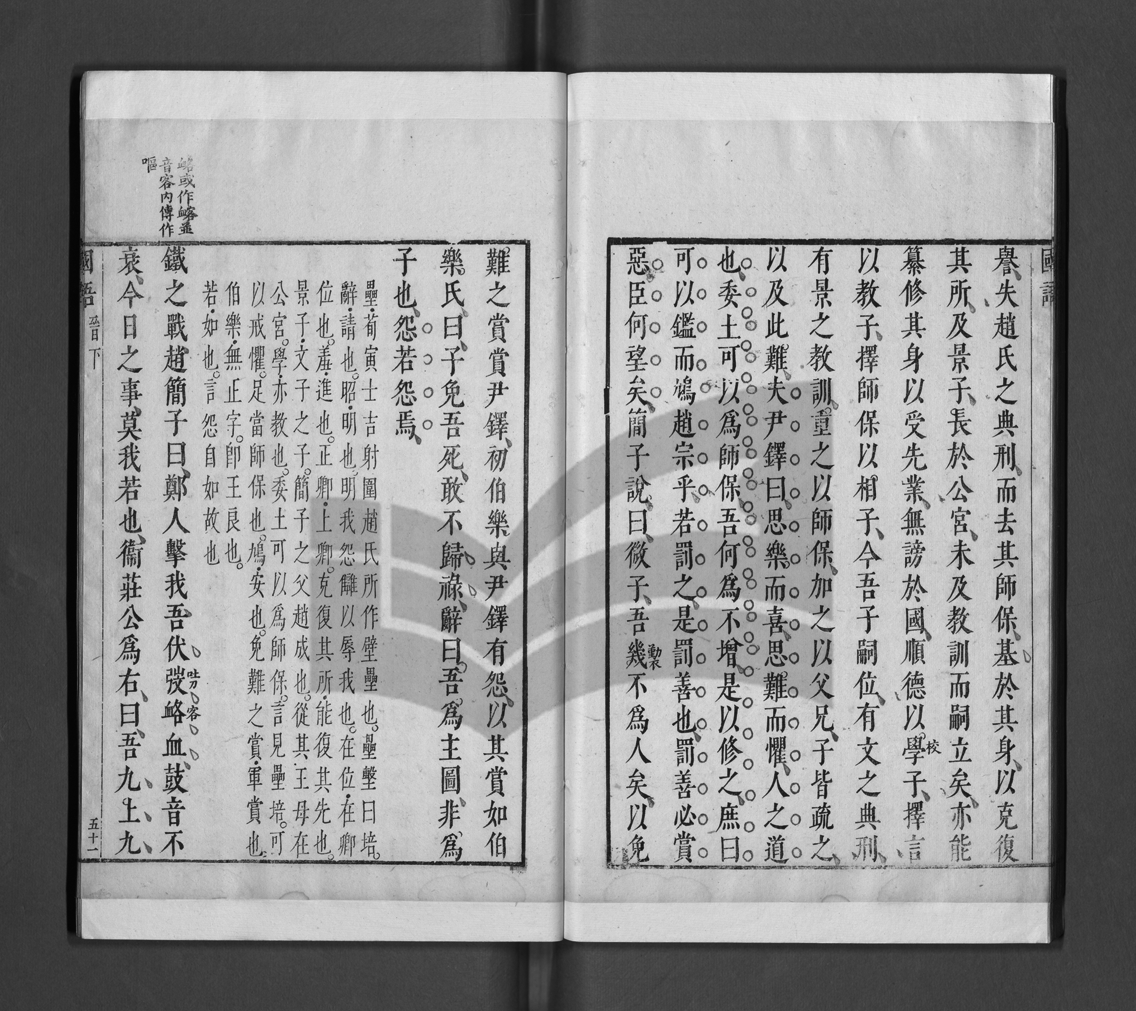 國語
譽、失趙氏之典刑、而去其師保、基於其身、以克復
其所、及景子、長於公宮、未及教訓而嗣立矣、亦能
纂修其身以受先業、無謗於國、順德以學子、擇言
校
以教子、擇師保以相子、今吾子嗣位、有文之典刑、
有景之教訓、重之以師保、加之以父兄、子皆疏之、
以及此難、夫尹鐸曰、思樂而喜、思難而懼、人之道
也、委土可以為師保、吾何為不增、是以修之、庶曰
可以鑑而鳩趙宗乎、若罰之、是罰善也、罰善必賞
惡、臣何望矣、簡子說、曰、微子、吾幾不為人矣、以免
難之賞賞尹鐸、初伯樂與尹鐸有怨、以其賞如伯
樂氏、曰、子免吾死、敢不歸祿、辭曰、吾為主圖、非為
子也、怨若怨焉、
壘、荀寅士吉射圍趙氏所作壁壘也。壘墼曰培。
辭、請也。昭、明也。明我怨讎以辱我也。在位、在卿
位也。羞、進也。正卿、上卿。克復其所、能復其先也。
景子、文子之子。簡子之父趙成也。從其王母在
公宮。學、亦教也。委土可以為師保。言見壘培。可
以戒懼。足當師保也。鳩、安也。免難之賞、軍賞也。
伯樂、無正字。卽王良也。
若、如也。言怨自如故也
鐵之戰、趙簡子曰、鄭人擊我、吾伏弢衉血、鼓音不
客
衰、今日之事、莫我若也、衞莊公為右、曰、吾九上九
國語 晉下 五十一
衉或作㗉並
音客內傳作
嘔